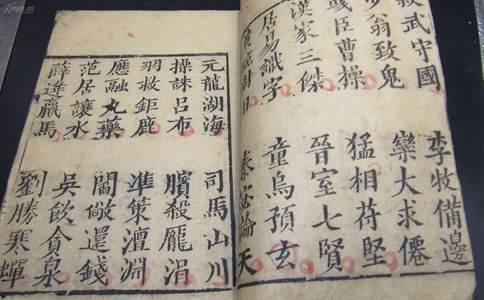 叔武守國 李牧備邊
少翁致鬼 欒大求僊
彧臣曹操 猛相苻堅
漢家三傑 晉室七賢
居易識字 童烏預玄
黃琬對日 秦宓論天
元龍湖海 司馬山川
操誅呂布 臏殺龐涓
羽救鉅鹿 準策澶淵
應融丸藥 閻敞還錢
范居讓水 吳飲貪泉
薛逢羸馬 劉勝寒蟬